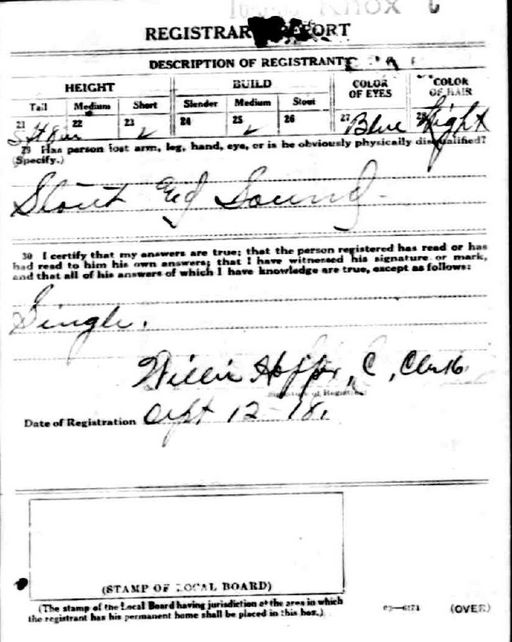 Knox 6
REGISTRAR REPORT
DESCRIPTION OF REGISTRANT
HEIGHT BUILD COLOR OF EYES COLOR OF HAIR
Tall Medium Short Slender Medium Stout
21 22 23 24 25 26 27 Blue 28 Light
29 Has person lost arm, leg, hand, eye, or is he obviously physically disqualified?
(Specify.)
Stout and Sound
30 I certify that my answers are true; that the person registered has read or has
had read to him his own answers; that I have witnessed his signature or mark,
and that all of his answers of which I have knowledge are true, except as follows:
Single.
Willie
Date of Registration Sept 12-18.
(STAMP OF LOCAL BOARD)
(The stamp of the Local Board having jurisdiction of the area in which
the registrant has his permanent home shall be placed in this box.)
(OVER)